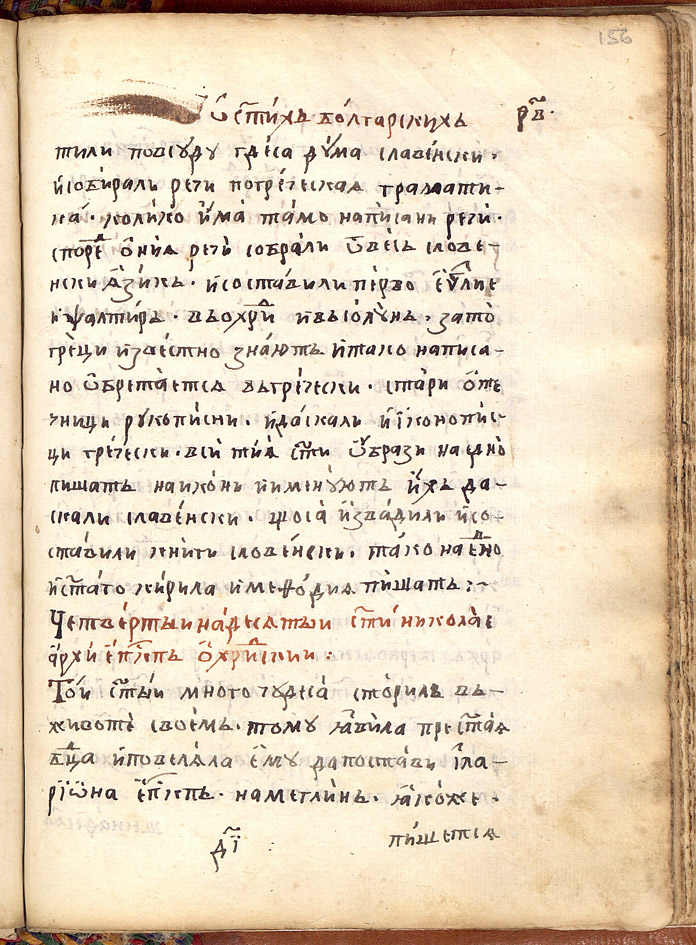 156
Ѡ ст҃ихъ болгарскихъ р҃в·
тили повсуду гдеса дꙋма славенски·
и собирали речи по греческая граматика·
колико има тамо написани речи·
според онїа речи собрали ѡ весь слове-
нски язикъ· и составили перво еѵ҃лие
и ѱалтиръ· въ охрид и въ солунъ· зато
греци известно знаютъ и тако написа-
но ѡбретается въ гречески· стари оте
чници рукописни· и даскали и иконопис-
ци гречески· вси тия ст҃и ѡбрази наедно
пишатъ на икони и именуютъ ихъ да-
скали славенски· щоса извадили и со-
ставили книги словенски· тако наедно
и ст҃аго кирила и меѳодия пишатъ :~
Четвертыи надесятыи ст҃и николае
архиеп҃скпъ охридскии·
Тои ст҃ыи много чудеса сторилъ въ-
животе своемъ· тому явила прест҃ая
бц҃а и повеляла ему да постави іла-
рїѡна еп҃скпъ· на меглинъ· якоже·
д҃і пишется